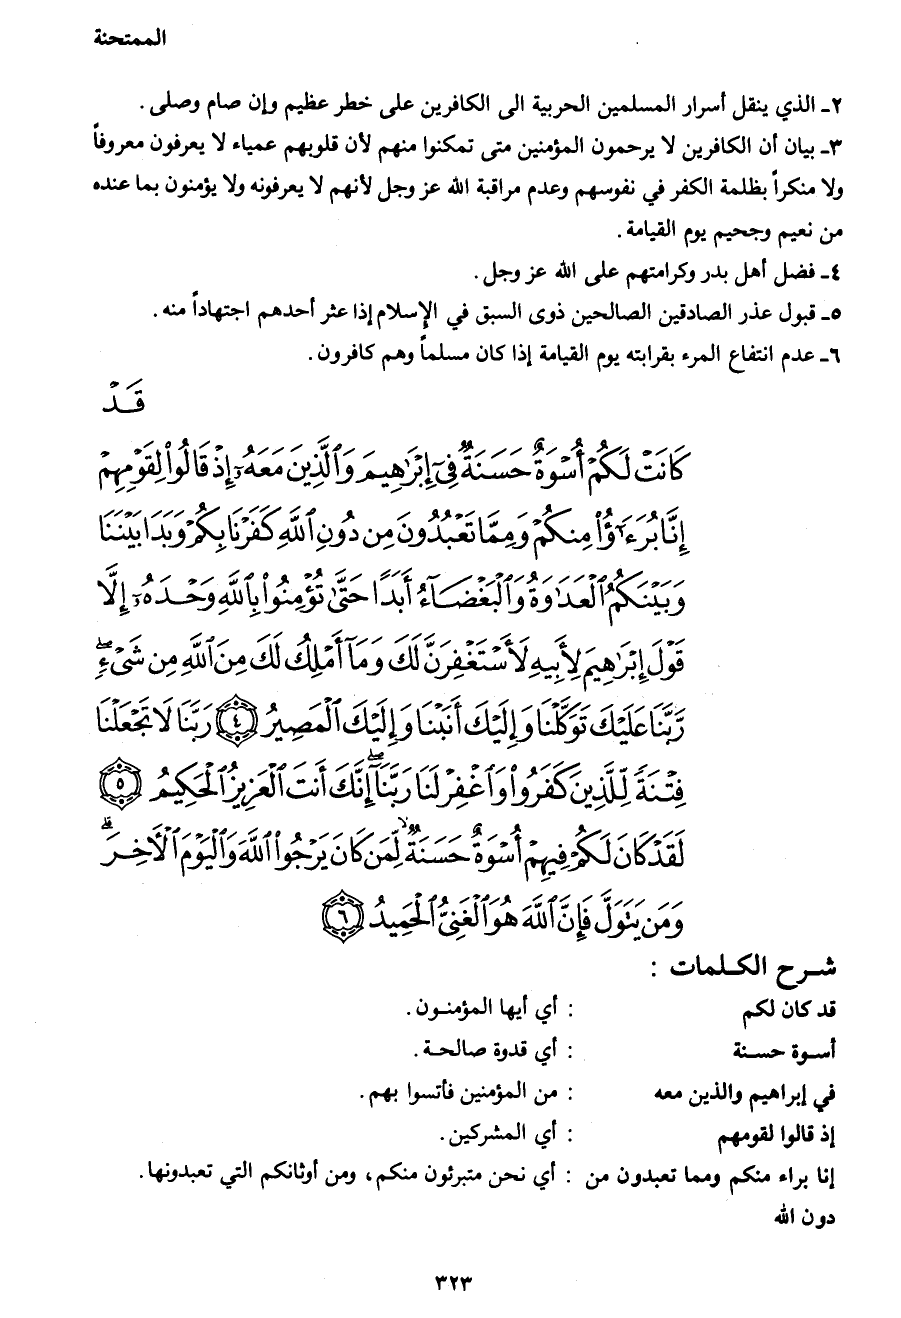 الممتحنة
٢ـ الذي ينقل أسرار المسلمين الحربية الى الكافرين على خطر عظيم وإن صام وصلى .
٣ـ بيان أن الكافرين لا يرحمون المؤمنين متى تمكنوا منهم لأن قلوبهم عمياء لا يعرفون معروفاً
ولا منكراً بظلمة الكفر في نفوسهم وعدم مراقبة الله عز وجل لأنهم لا يعرفونه ولا يؤمنون بما عنده
من نعيم وجحيم يوم القيامة .
٤ـ فضل أهل بدر وكرامتهم على الله عز وجل .
٥ـ قبول عذر الصادقين الصالحين ذوى السبق في الإسلام إذا عثر أحدهم اجتهاداً منه .
٦ـ عدم انتفاع المرء بقرابته يوم القيامة إذا كان مسلماً وهم كافرون .
قَدْ
كَانَتْ لَكُمْ أُسْوَةٌ حَسَنَةٌ فِىٓ إِبْرَٰهِيمَ وَٱلَّذِينَ مَعَهُۥٓ إِذْ قَالُوا۟ لِقَوْمِهِمْ
إِنَّا بُرَءَٰٓؤُا۟ مِنكُمْ وَمِمَّا تَعْبُدُونَ مِن دُونِ ٱللَّهِ كَفَرْنَا بِكُمْ وَبَدَا بَيْنَنَا
وَبَيْنَكُمُ ٱلْعَدَٰوَةُ وَٱلْبَغْضَآءُ أَبَدًا حَتَّىٰ تُؤْمِنُوا۟ بِٱللَّهِ وَحْدَهُۥٓ إِلَّا
قَوْلَ إِبْرَٰهِيمَ لِأَبِيهِ لَأَسْتَغْفِرَنَّ لَكَ وَمَآ أَمْلِكُ لَكَ مِنَ ٱللَّهِ مِن شَىْءٍۖ
رَّبَّنَا عَلَيْكَ تَوَكَّلْنَا وَإِلَيْكَ أَنَبْنَا وَإِلَيْكَ ٱلْمَصِيرُ ٤ رَبَّنَا لَا تَجْعَلْنَا
فِتْنَةً لِّلَّذِينَ كَفَرُوا۟ وَٱغْفِرْ لَنَا رَبَّنَآۖ إِنَّكَ أَنتَ ٱلْعَزِيزُ ٱلْحَكِيمُ ٥
لَقَدْ كَانَ لَكُمْ فِيهِمْ أُسْوَةٌ حَسَنَةٌۙ لِّمَن كَانَ يَرْجُوا۟ ٱللَّهَ وَٱلْيَوْمَ ٱلْأَخِرَۗ
وَمَن يَتَوَلَّ فَإِنَّ ٱللَّهَ هُوَ ٱلْغَنِىُّ ٱلْحَمِيدُ ٦
شرح الكلمات :
قد كان لكم : أي أيها المؤمنون .
أسوة حسنة : أي قدوة صالحة .
في إبراهيم والذين معه : من المؤمنين فأتسوا بهم .
إذ قالوا لقومهم : أي المشركين .
إنا براء منكم ومما تعبدون من : أي نحن متبرئون منكم، ومن أوثانكم التي تعبدونها .
دون الله
٣٢٣